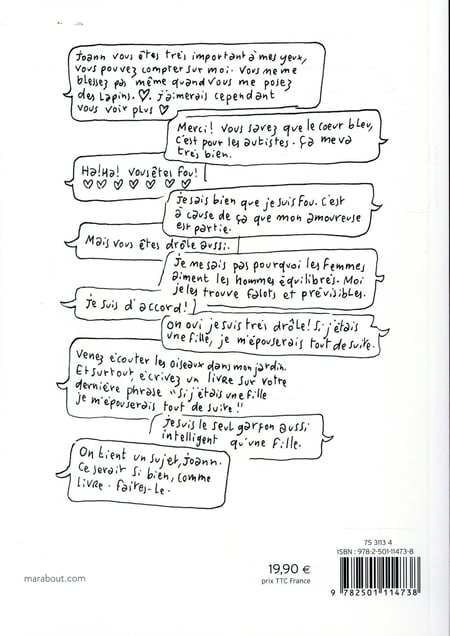 Joann vous êtes très important à mes yeux,
vous pouvez compter sur moi. Vous ne me
blessez pas même quand vous me posez
des lapins. ♡. J'aimerais cependant
vous voir plus ♡
Merci! Vous savez que le coeur bleu,
c'est pour les autistes. Ça me va
très bien.
Ha! Ha! Vous êtes fou!
♡ ♡ ♡ ♡ ♡ ♡ ♡
Je sais bien que je suis fou. C'est
à cause de ça que mon amoureuse
est partie.
Mais vous êtes drôle aussi.
Je ne sais pas pourquoi les femmes
aiment les hommes équilibrés. Moi
je les trouve falots et prévisibles.
Je suis d'accord!
Oh oui je suis très drôle! Si j'étais
une fille, je m'épouserais tout de suite.
Venez écouter les oiseaux dans mon jardin.
Et surtout, écrivez un livre sur votre
dernière phrase "si j'étais une fille
je m'épouserais tout de suite!"
Je suis le seul garçon aussi
intelligent qu'une fille.
On tient un sujet, Joann.
Ce serait si bien, comme
livre. Faites-le.
marabout.com
19,90 €
prix TTC France
75 3113 4
ISBN : 978-2-501-11473-8
9 782501 114738